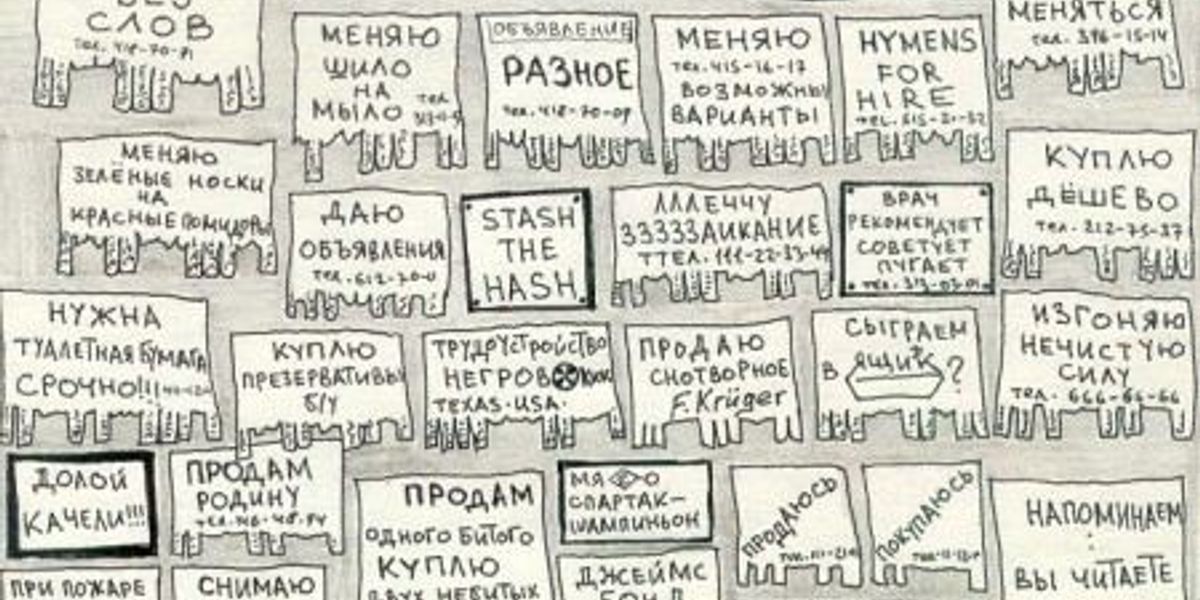 БЕЗ
СЛОВ
МЕНЯЮ
ШИЛО
НА
МЫЛО
тел
ОБЪЯВЛЕНИЕ
РАЗНОЕ
тел. 418-70-09
МЕНЯЮ
тел. 415-16-17
ВОЗМОЖНЫ
ВАРИАНТЫ
HYMENS
FOR
HIRE
tel. 615-21-32
МЕНЯТЬСЯ
тел. 396-15-14
МЕНЯЮ
ЗЕЛЁНЫЕ НОСКИ
НА
КРАСНЫЕ ПОМИДОРЫ
ДАЮ
ОБЪЯВЛЕНИЯ
тел. 612-70-
STASH
THE
HASH
ЛЛЛЕЧЧУ
ЗЗЗЗЗАИКАНИЕ
ТТЕЛ. 111-22-33-44
ВРАЧ
РЕКОМЕНДУЕТ
СОВЕТУЕТ
ПУГАЕТ
тел. 313-03-01
КУПЛЮ
ДЁШЕВО
тел. 212-75-37
НУЖНА
ТУАЛЕТНАЯ БУМАГА
СРОЧНО!!!
КУПЛЮ
ПРЕЗЕРВАТИВЫ
Б/У
ТРУДОУСТРОЙСТВО
НЕГРОВ KKK
TEXAS. USA.
ПРОДАЮ
СНОТВОРНОЕ
F. Krüger
СЫГРАЕМ
В ЯЩИК ?
ИЗГОНЯЮ
НЕЧИСТУЮ
СИЛУ
тел. 666-66-66
ДОЛОЙ
КАЧЕЛИ!!!
ПРОДАМ
РОДИНУ
ПРОДАМ
ОДНОГО БИТОГО
КУПЛЮ
ДВУХ НЕБИТЫХ
СПАРТАК-
ШАМПИНЬОН
ПРОДАЮСЬ
ПОКУПАЮСЬ
НАПОМИНАЕМ
:
ВЫ ЧИТАЕТЕ
ПРИ ПОЖАРЕ
СНИМАЮ
ДЖЕЙМС
БОНД